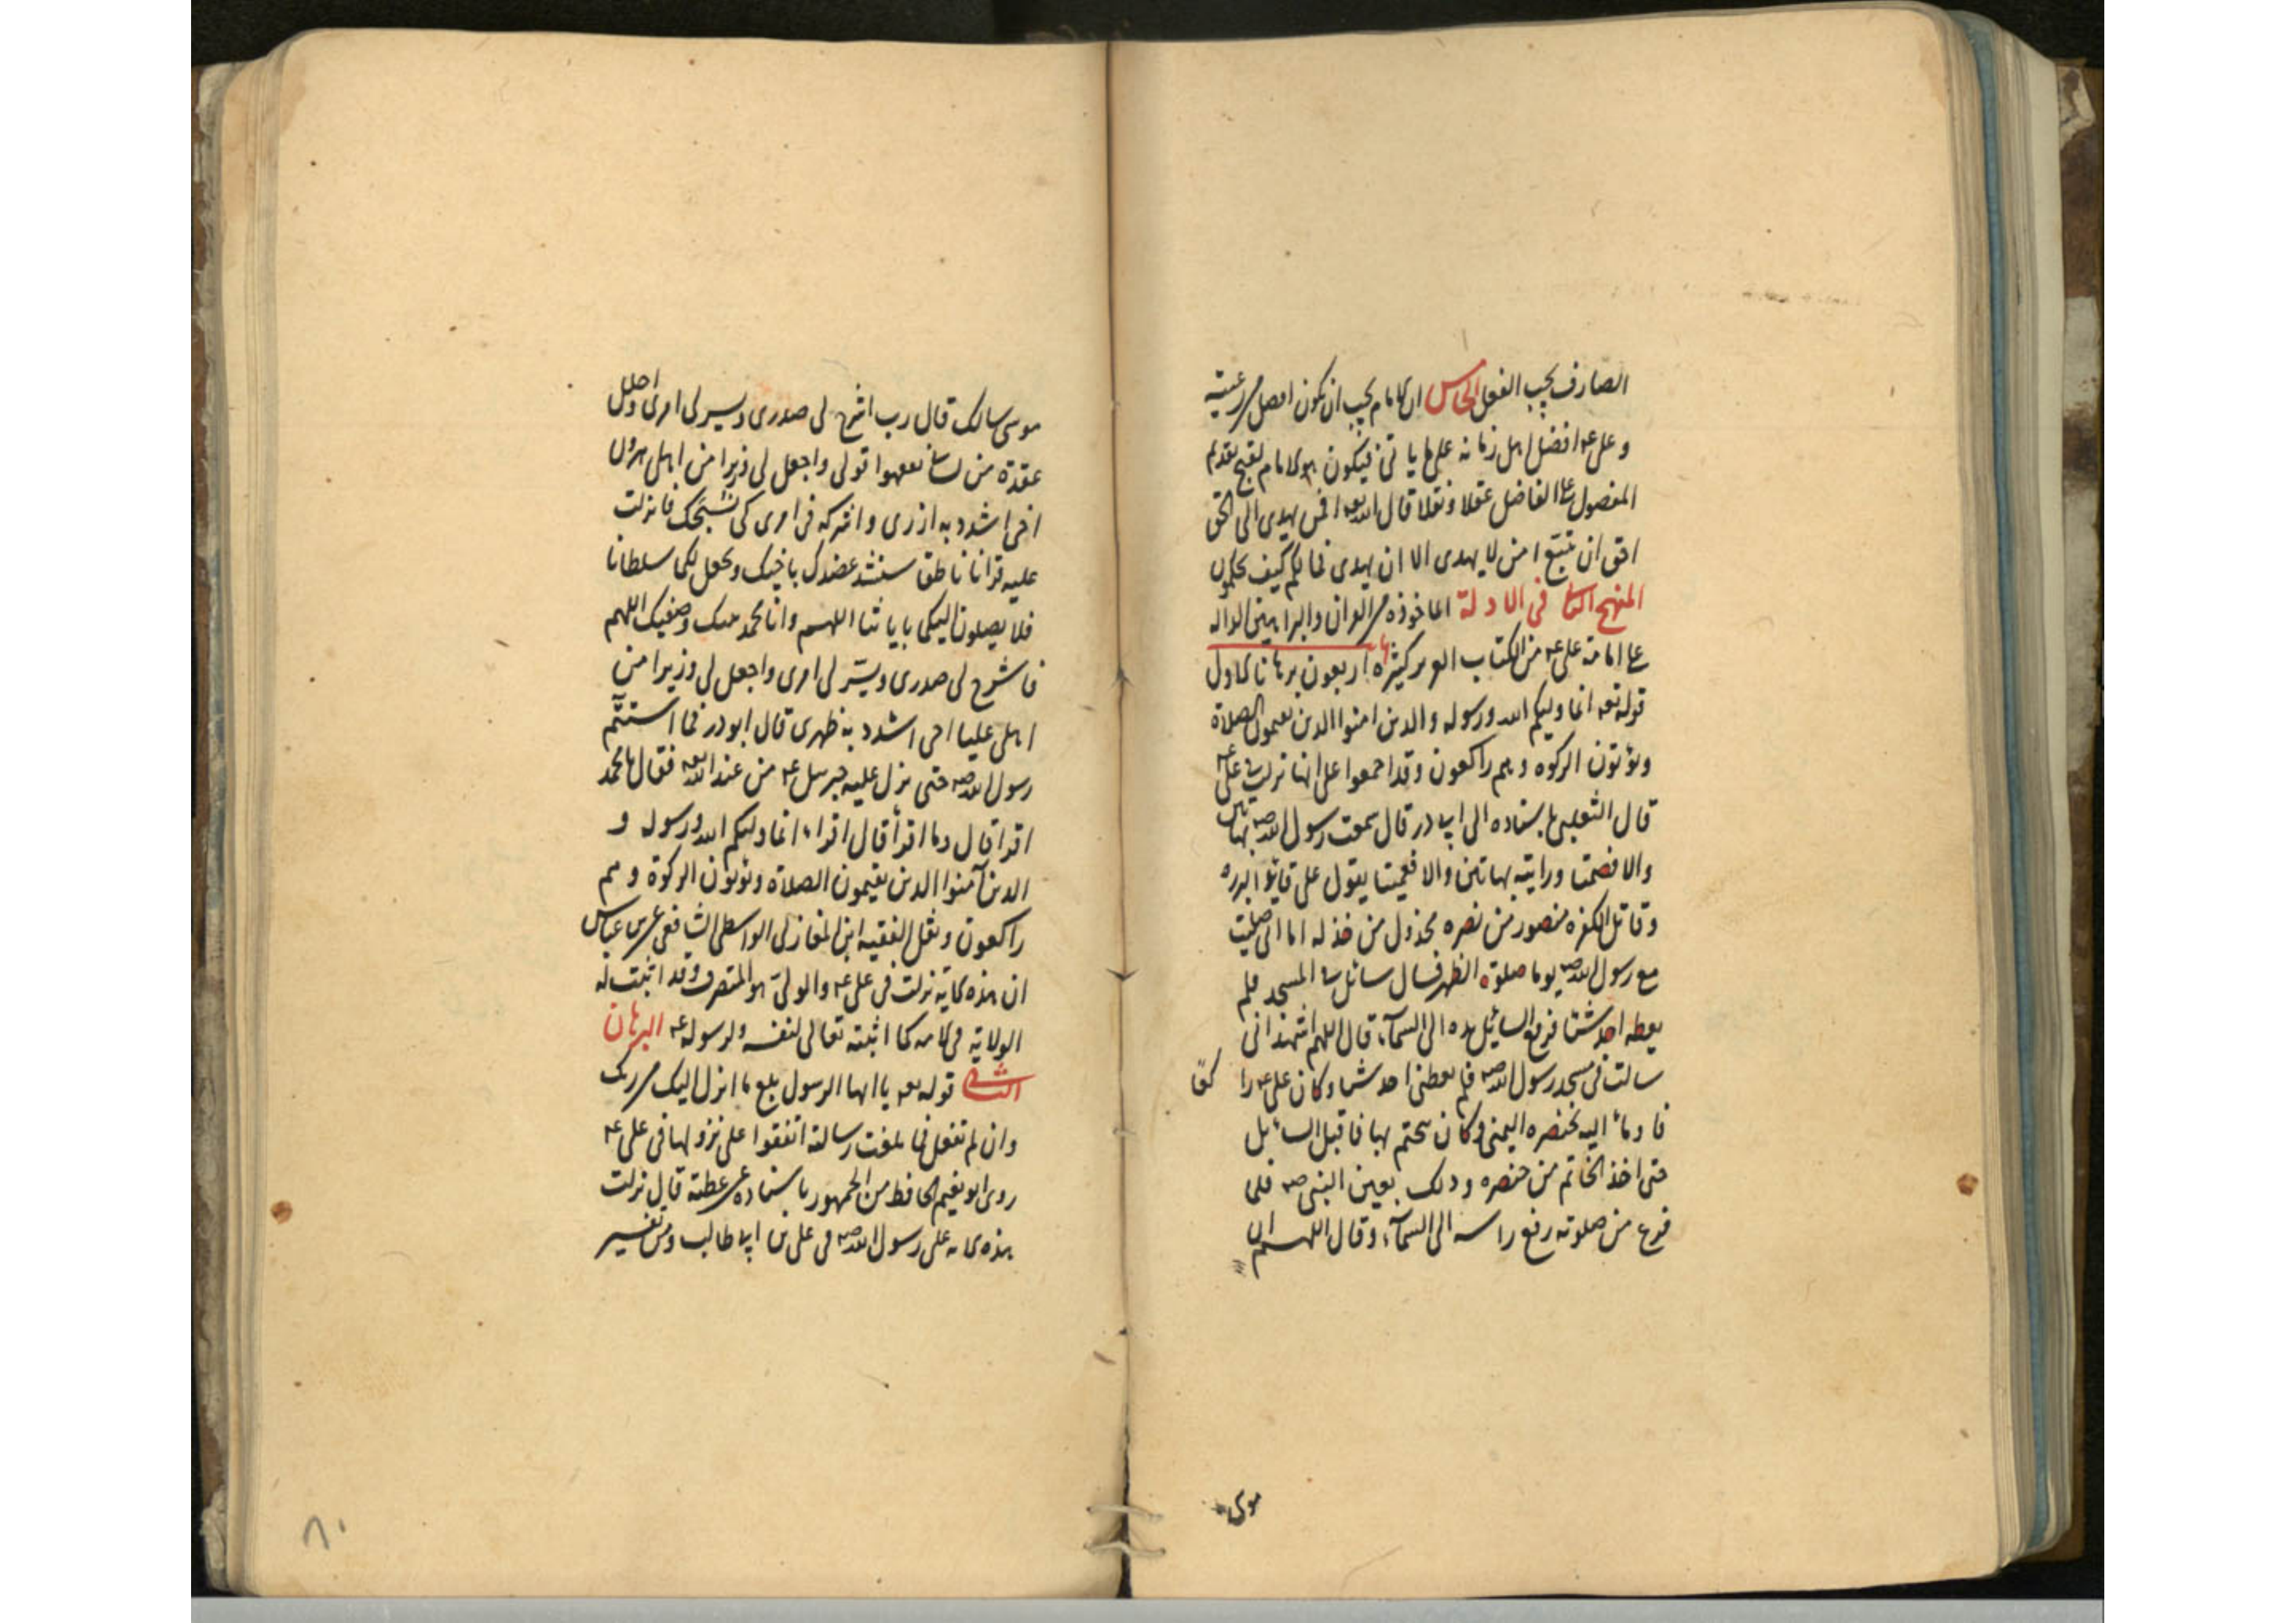 الصارف يجب الفعل الخامس ان الامام يجب ان يكون افضل من رعيته
وعلى ع افضل اهل زمانه على ما ياتى فيكون هو الامام لقبح تقدم
المفضول على الفاضل عقلا ونقلا قال الله تعه افمن يهدى الى الحق
احق ان يتبع امن لا يهدى الا ان يهدى فما لكم كيف تحكمون
المنهج الثانى فى الادلة الماخوذة من القران والبراهين الدالة
على امامة على ع من الكتاب العزيز كثيرة اربعون برهانا الاول
قوله تعه انما وليكم الله ورسوله والدين امنوا الدين يقيمون الصلاة
ويؤتون الزكوة وهم راكعون وقد اجمعوا على انها نزلت فى على ع
قال الثعلبى باسناده الى ابى ذر قال سمعت رسول الله صه بهاتين
والا فصمتا ورايته بهاتين والا فعميتا يقول على قايد البررة
وقاتل الكفرة منصور من نصره مخذول من خذله اما انى صليت
مع رسول الله صه يوما صلوة الظهر فسال سائل فى المسجد فلم
يعطه احد شيئا فرفع السائل يده الى السمآء قال اللهم اشهد انى
سالت فى مسجد رسول الله صه فلم يعطنى احد شيئا وكان على ع راكعا
فاومأ اليه بخنصره اليمنى وكان يتختم بها فاقبل السائل
حتى اخذ الخاتم من خنصره ودلك بعين النبى صه فلما
فرغ من صلوته رفع راسه الى السمآء وقال اللهم ان
موسى
موسى سالك قال رب اشرح لى صدرى ويسر لى امرى واحلل
عقدة من لسانى يفقهوا قولى واجعل لى وزيرا من اهلى هرون
اخى اشدد به ازرى واشركه فى امرى كى نسبحك فانزلت
عليه قرانا ناطقا سنشد عضدك باخيك ونجعل لكما سلطانا
فلا يصلون اليكما باياتنا اللهم وانا محمد نبيك وصفيك اللهم
فاشرح لى صدرى ويسّر لى امرى واجعل لى وزيرا من
اهلى عليا اخى اشدد به ظهرى قال ابو در فما استتم
رسول الله صه حتى نزل عليه جبرئيل ع من عند الله تعه فقال يا محمد
اقرا قال وما اقرأ قال اقراء انما وليكم الله ورسوله و
الدين آمنوا الدين يقيمون الصلاة ويؤتون الزكوة وهم
راكعون ونقل الفقيه ابن المغازلى الواسطى الشافعى عن ابن عباس
ان هذه الاية نزلت فى على ع والولى هو المتصرف وقد اثبت له
الولاية فى الامة كما اثبته تعالى لنفسه ولرسوله ع البرهان
الثانى قوله تعه يا ايها الرسول بلغ ما انزل اليك من ربك
وان لم تفعل فما بلغت رسالته اتفقوا على نزولها فى على ع
روى ابو نعيم الحافظ من الجمهور باسناده عن عطية قال نزلت
هذه الاية على رسول الله صه فى على بن ابى طالب ومن تفسير
٨٠